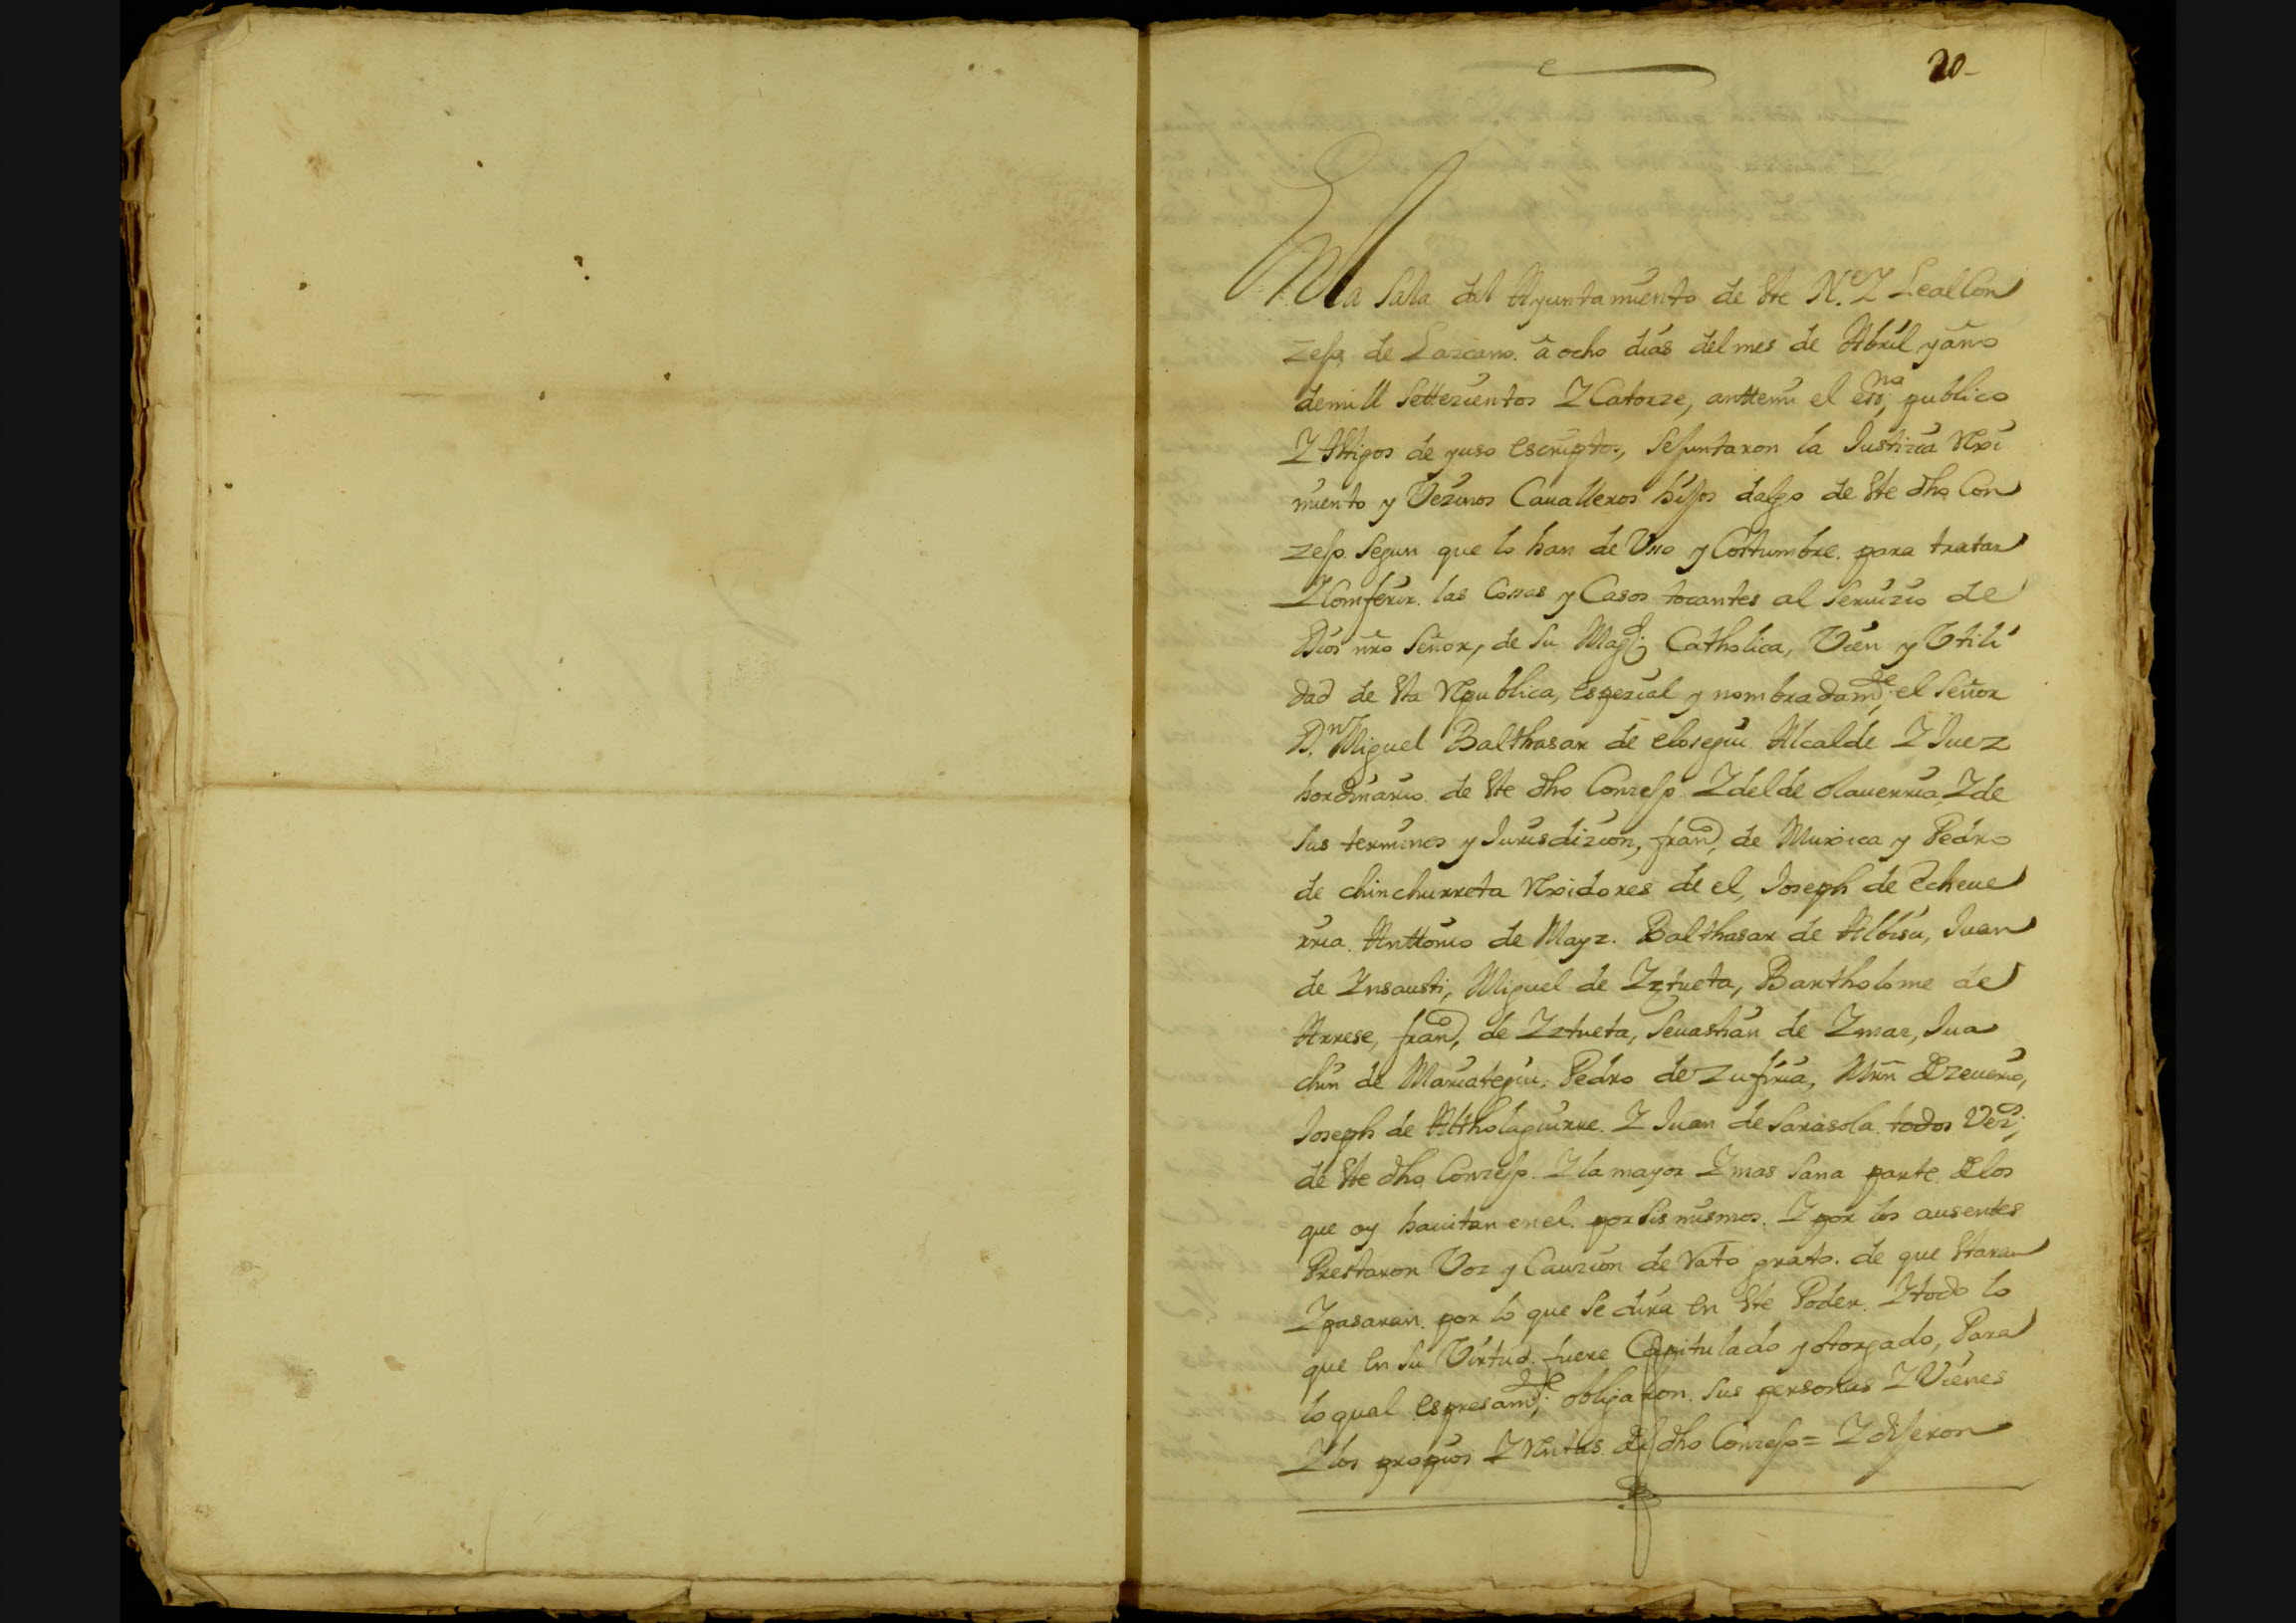 20-
En la Sala del Ayuntamiento de Ste N.e Y Leal Con
zejo de Lazcano. â ocho dias del mes de Abril y año
de mill Settezientos Y Catorze, anttemi el essno; publico
Y ttigos de yuso escriptos, Sejuntaron la Justizia Rexi
miento y Vezinos Caualleros hijos dalgo de Ste dho Con
zejo. Segun que lo han de Vsso y Costumbre. para tratar
Y Comferir. las Cossas y Casos tocantes al Seruizio de
Dios nro Señor, de Su Magd; Catholica, Vien y Vtili
dad de Sta Republica, espezial y nombradamte; el Señor
D.n Miguel Balthasar de elosegui. Alcalde Y Juez
hordinario de Ste dho Conzejo. Y del de olauerria, Y de
Sus terminos y Jurisdizion, frano, de Muxica y Pedro
de chinchurreta Rexidores de el, Joseph de Echeue
rria. Anttonio de Mayz. Balthasar de Albisu, Juan
de Ynsausti, Miguel de Yztueta, Bartholome de
Arrese, frano, de Yztueta, Seuastian de Ymaz, Jua
chin de Mariategui. Pedro de Zufiria, Mrn de zeuerio,
Joseph de Altholaguirre. Y Juan de Sarasola. todos Vezos;
de Ste dho Conzejo. Y la mayor Y mas Sana parte. de los
que oy hauitan en el. por Sis mismos. Y por los ausentes
Prestaron Voz y Cauzion de rato grato. de que Staran
Y pasaran. por lo que Se dira en Ste Poder. Y todo lo
que en Su Virtud. fuere Capitulado y otorgado, Para
lo qual espresamte; obligaron. Sus personas Y Vienes
Y los propios Y Rentas. del dho Conzejo = Y dijeron